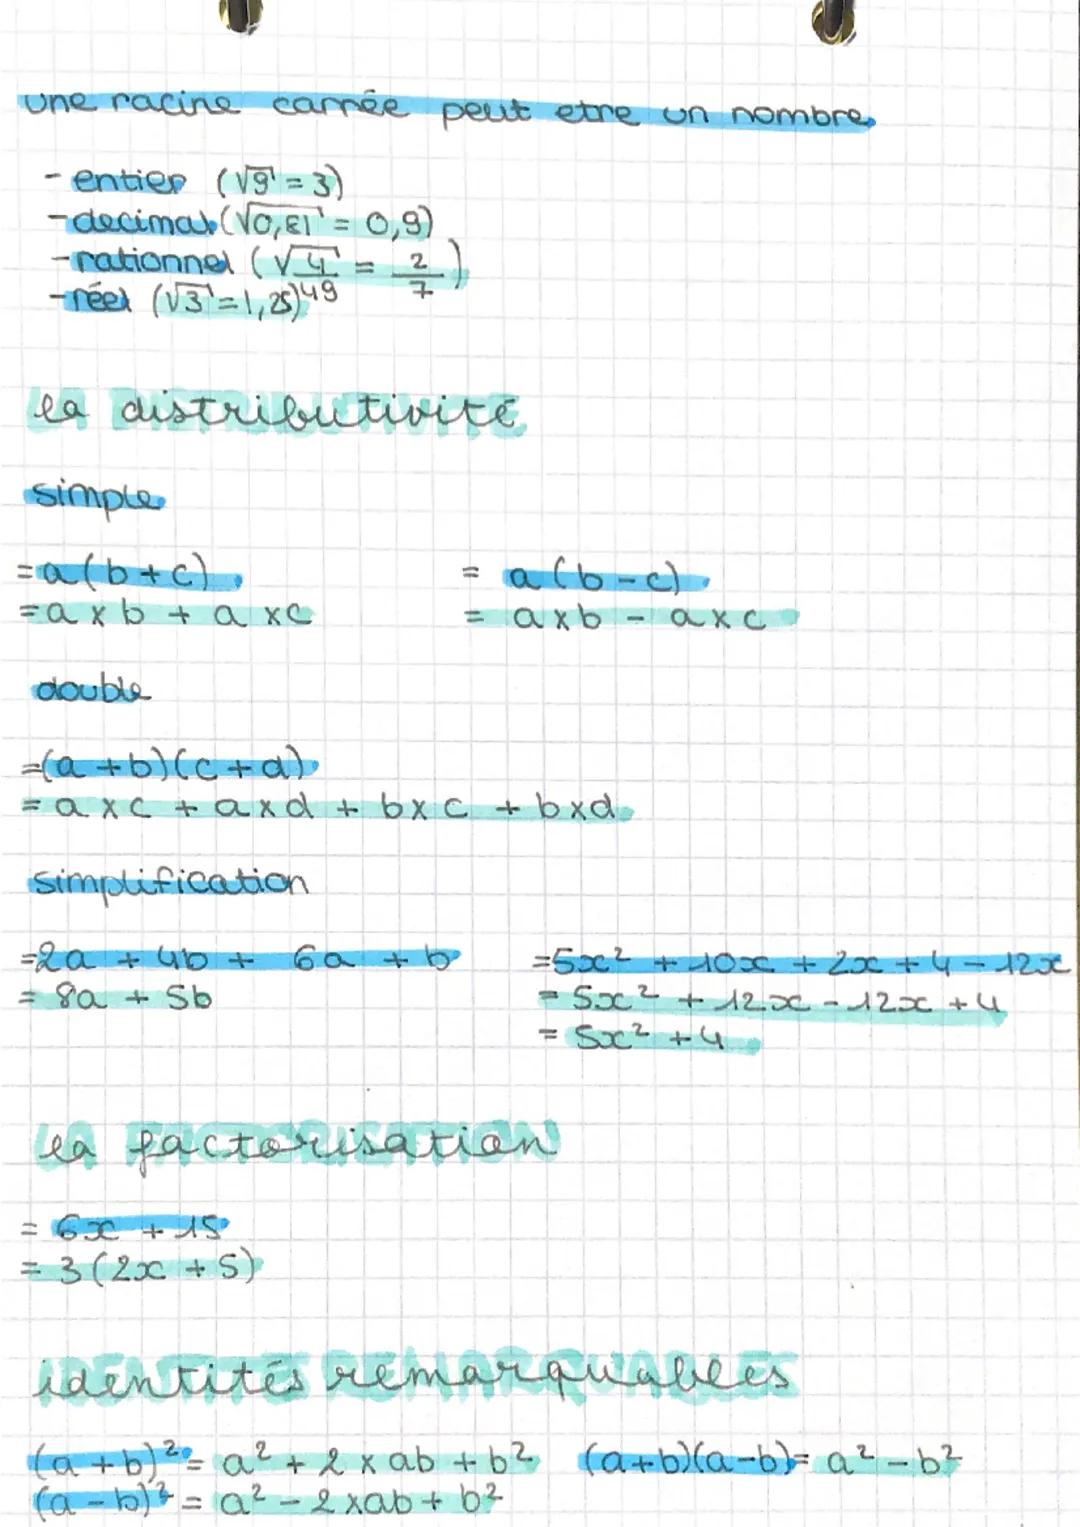 une racine carrée peut etre un nombre
- entier (√9 = 3)
- decimal (√0,81 = 0,9)
- rationnel (√4/49 = 2/7)
- réel (√3 = 1,25)
la distributivité
simple
= a(b+c) = a(b-c)
= a x b + a x c = a x b - a x c
double
=(a+b)(c+d)
= a x c + a x d + b x c + b x d
simplification
=2a + 4b + 6a + b =5x² + 10x + 2x + 4 - 12x
= 8a + 5b = 5x² + 12x - 12x + 4
= 5x² + 4
la factorisation
= 6x + 15
= 3(2x + 5)
identités remarquables
(a+b)² = a² + 2 x ab + b² (a+b)(a-b) = a² - b²
(a-b)² = a² - 2 x ab + b²